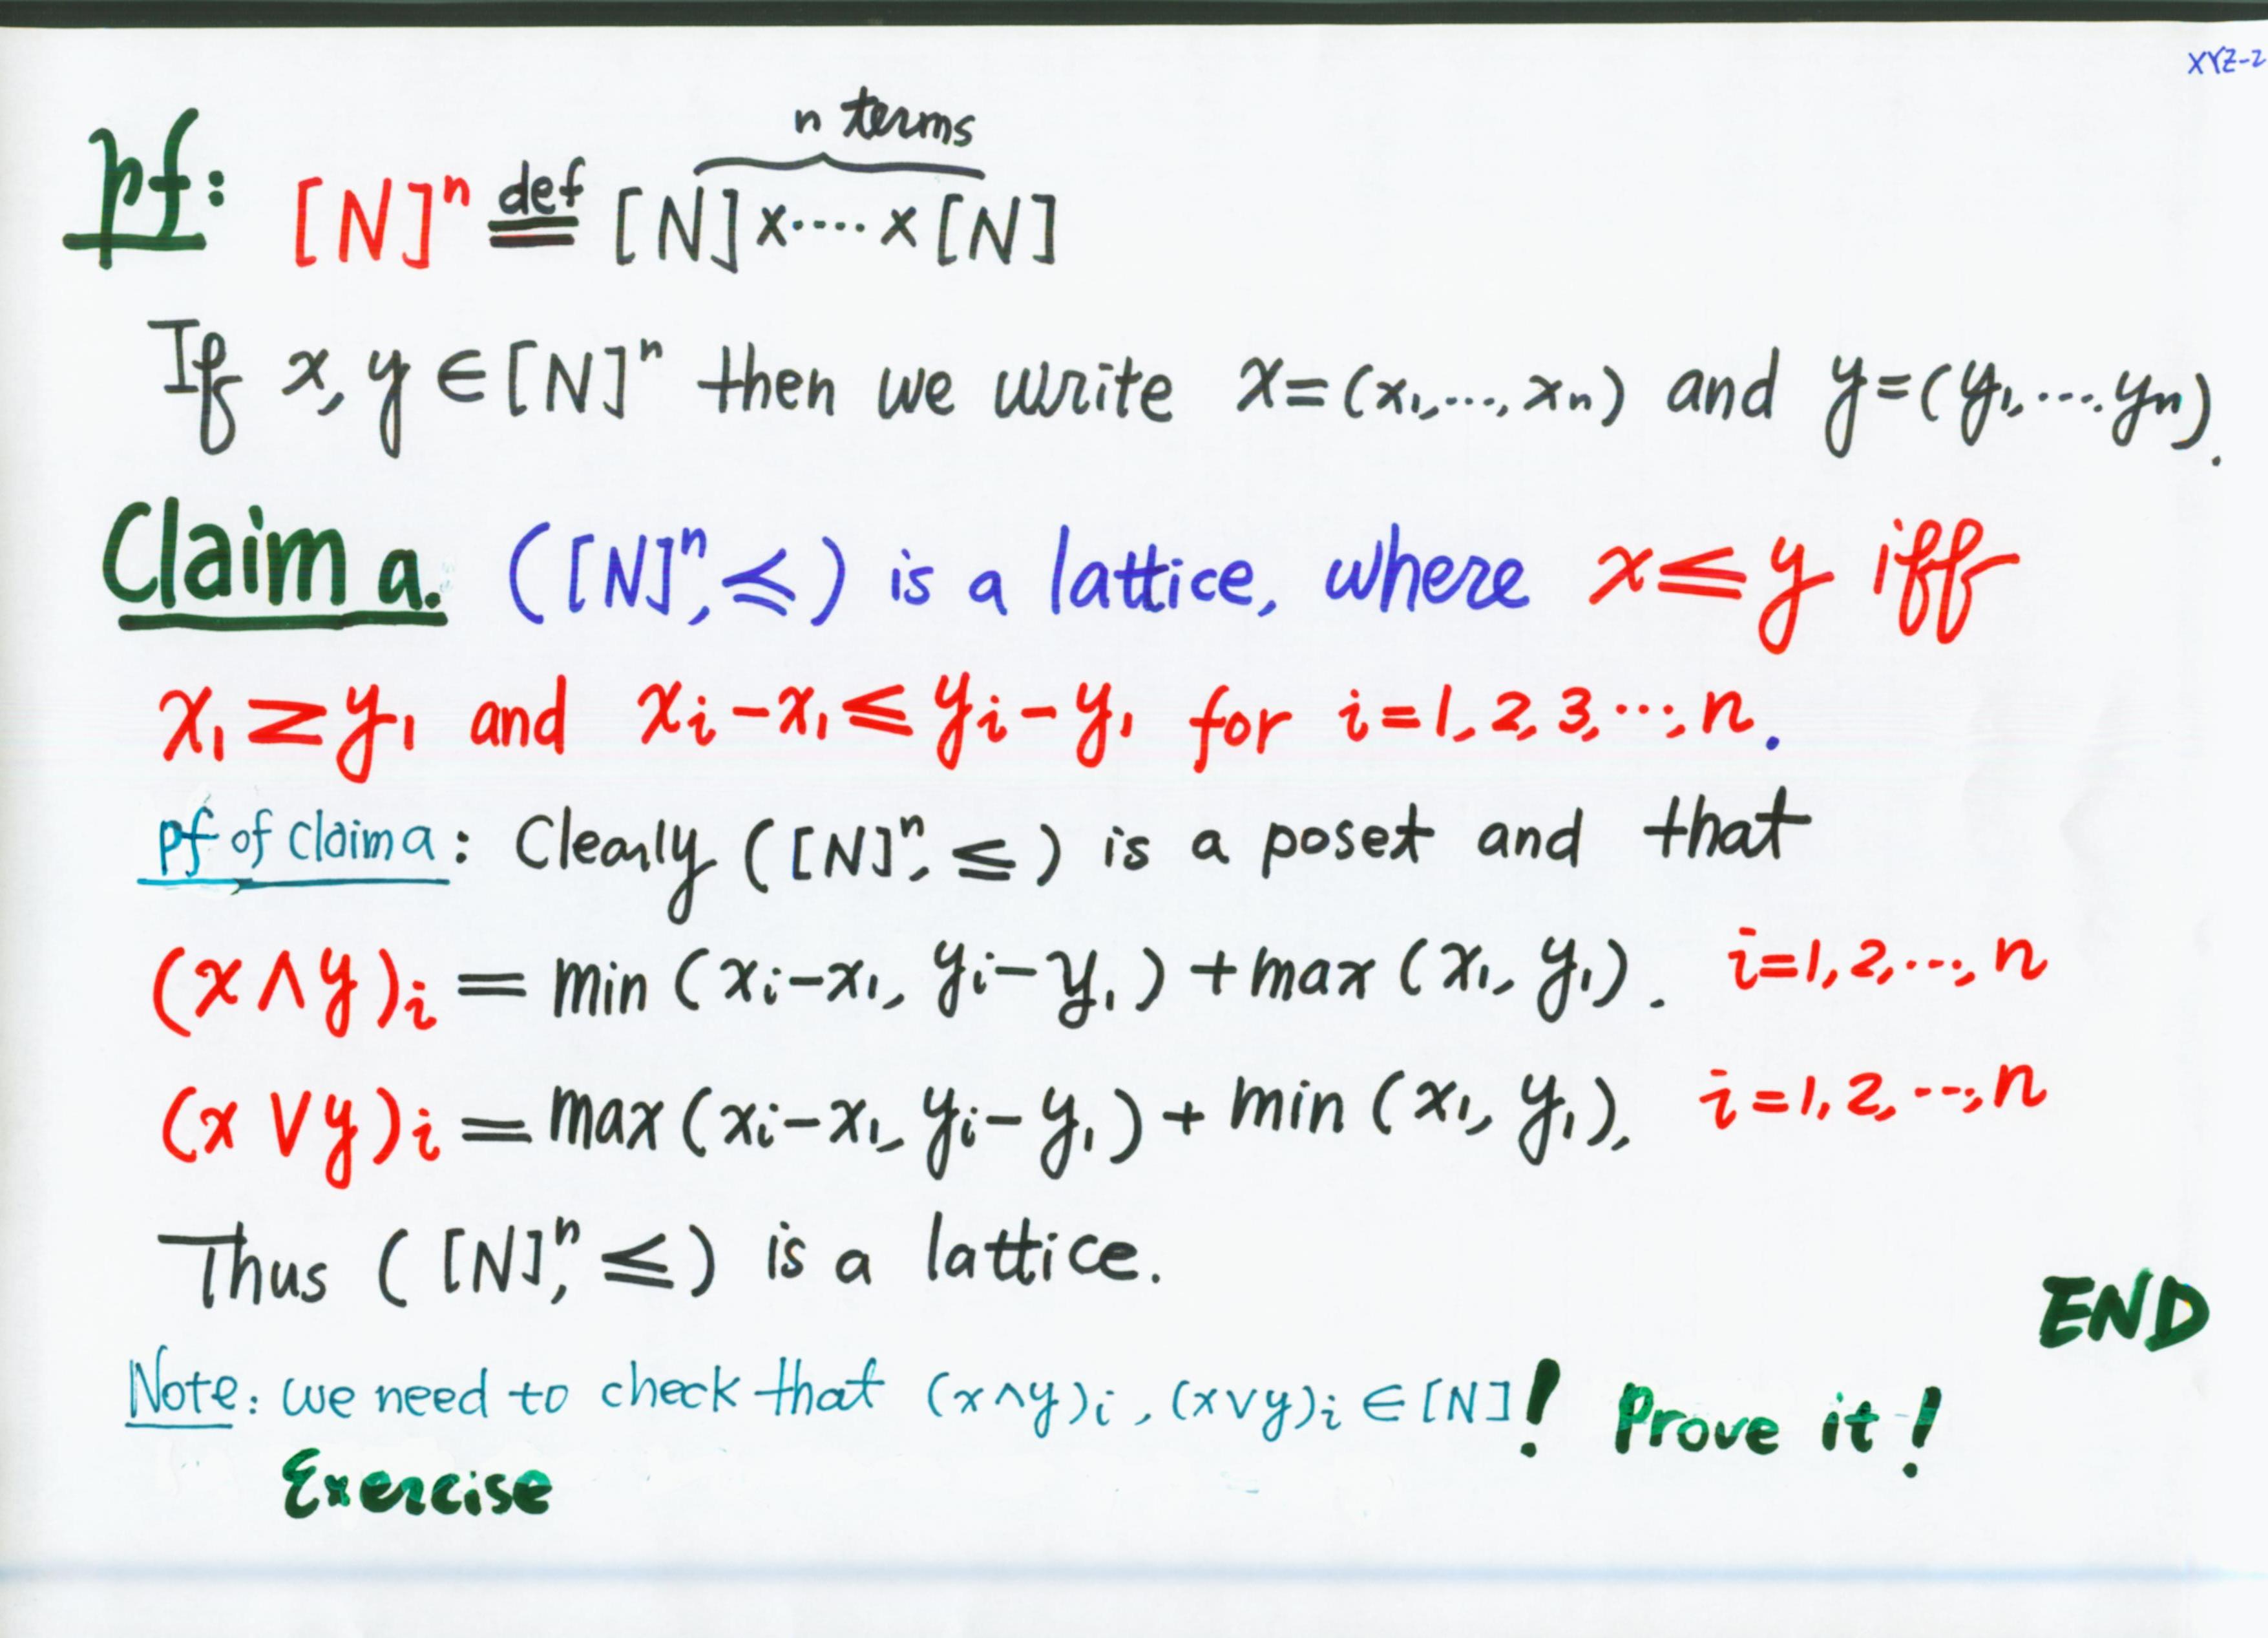 XYZ-2
n terms
pf: [N]ⁿ def= [N]×····×[N]
If x, y ∈ [N]ⁿ then we write x=(x₁,…, xₙ) and y=(y₁,…yₙ).
Claim a. ([N]ⁿ, ≤) is a lattice, where x≤y iff
x₁ ≥ y₁ and xᵢ-x₁ ≤ yᵢ-y₁ for i=1,2,3,…,n.
pf of claim a: Clearly ([N]ⁿ, ≤) is a poset and that
(x∧y)ᵢ = min (xᵢ-x₁, yᵢ-y₁) + max (x₁, y₁). i=1,2,…,n
(x∨y)ᵢ = max (xᵢ-x₁, yᵢ-y₁) + min (x₁, y₁), i=1,2,…,n
Thus ([N]ⁿ, ≤) is a lattice.
END
Note: we need to check that (x∧y)ᵢ, (x∨y)ᵢ ∈ [N]! Prove it!
Exercise